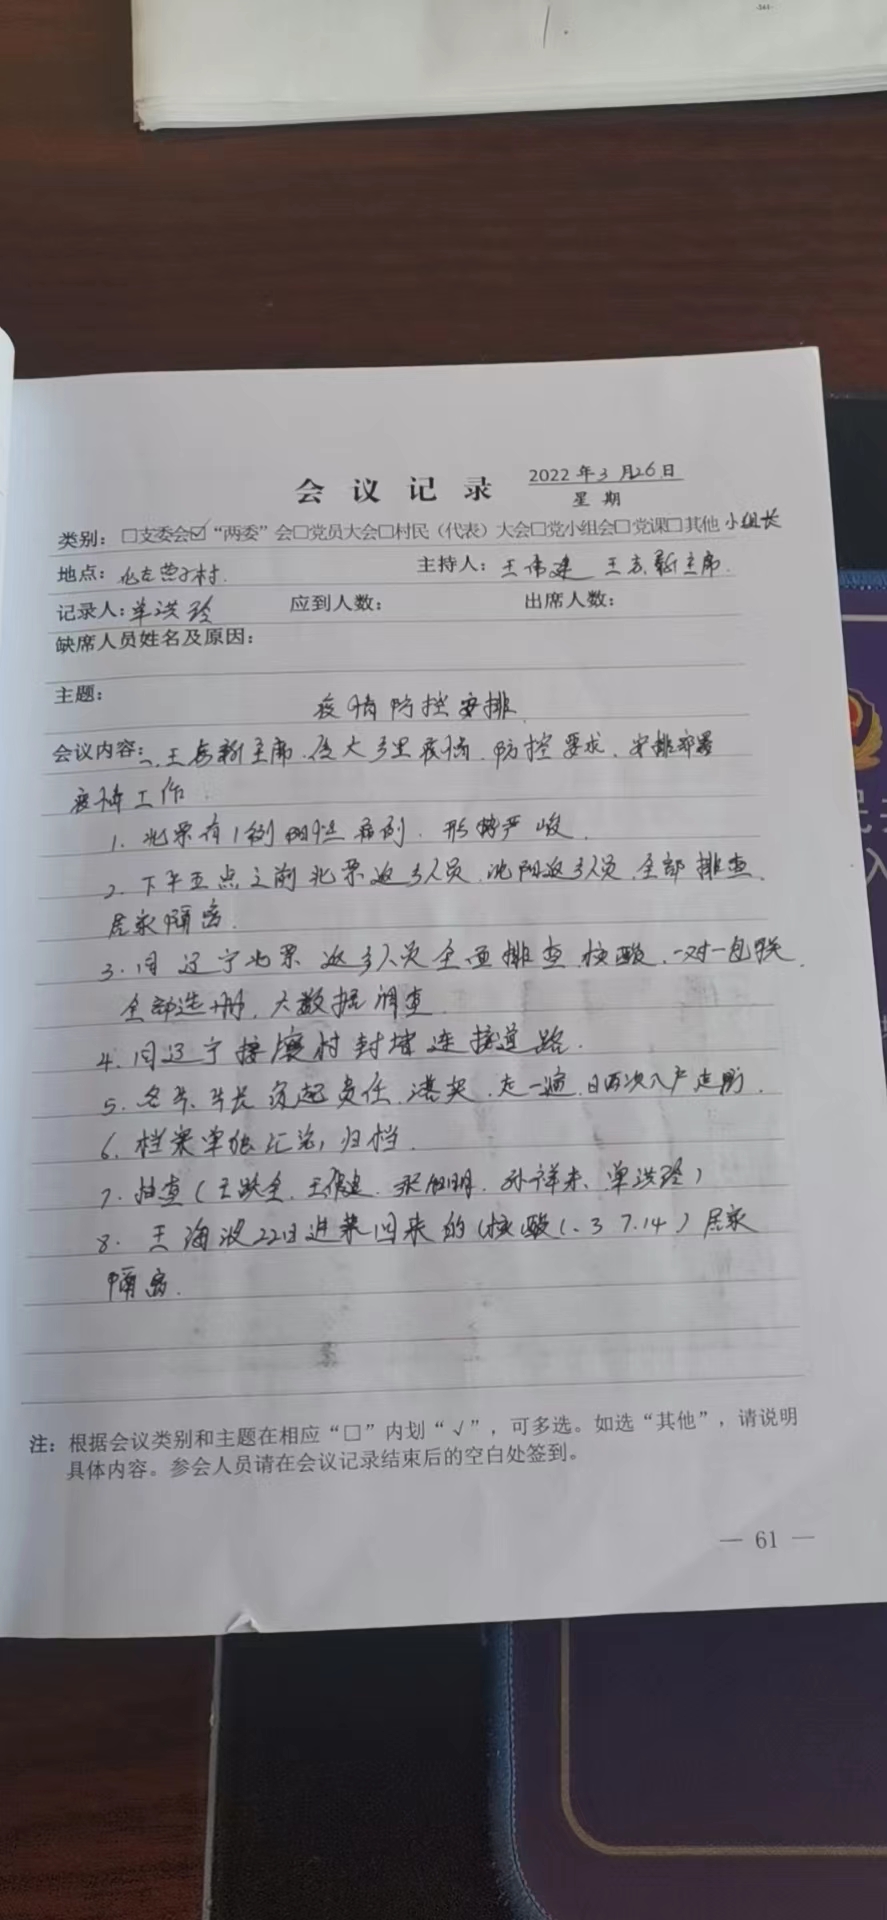 1.
会议记录 2022年3月26日
星期
类别：□支委会☑“两委”会□党员大会□村民（代表）大会□党小组会□党课□其他 小组长
地点： 营子村. 主持人：王伟建 王志新主席.
记录人：单洪玲 应到人数： 出席人数：
缺席人员姓名及原因：
主题：
疫情防控安排
会议内容：一、王志新主席.传大 疫情.防控要求.安排部署
疫情工作.
1. 北票有1例阳性病例.形势严峻.
2. 下午五点之前北票返乡人员.沈阳返乡人员.全部排查.
居家隔离.
3. 同辽宁北票返乡人员全面排查.核酸.一对一包联.
全部造册.大数据调查.
4. 同辽宁接壤村封堵连接道路.
5. 各片.片长负起责任. 走一遍.日两次入户走访.
6. 档案单独汇总,归档.
7. 抽查(王跃全.王伟建. 明.孙祥来、单洪玲)
8. 王海波22日进菜回来的(核酸1.3 7.14)居家
隔离.
注：根据会议类别和主题在相应“□”内划“√”，可多选。如选“其他”，请说明
具体内容。参会人员请在会议记录结束后的空白处签到。
— 61 —